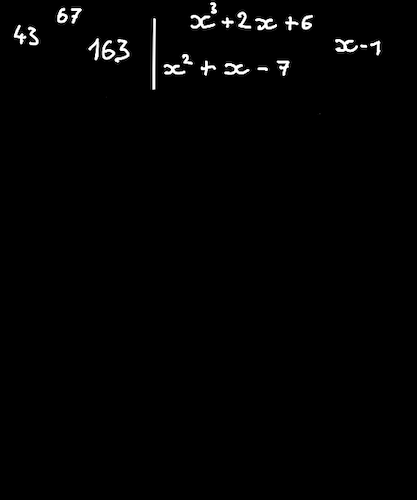 43 67 163 | x³+2x+6 x-1
x²+x-7